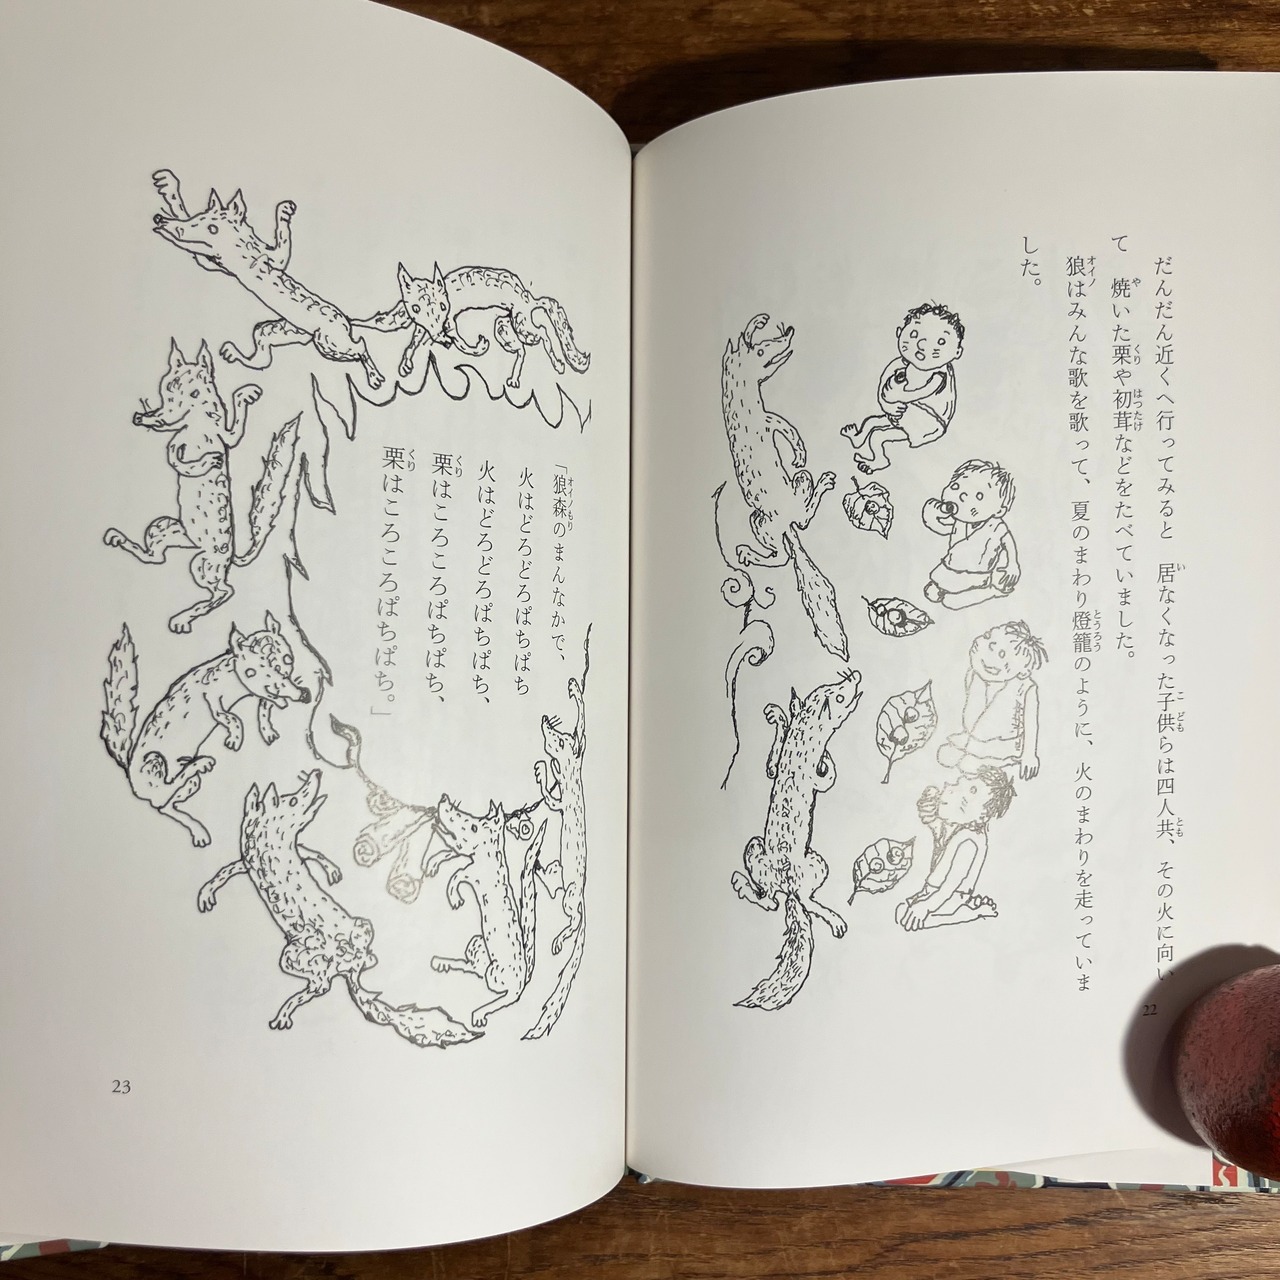 だんだん近くへ行ってみると 居なくなった子供らは四人共、その火に向い
て 焼いた栗や初茸などをたべていました。
狼はみんな歌を歌って、夏のまわり燈籠のように、火のまわりを走っていま
した。
22
「狼森のまんなかで、
火はどろどろぱちぱち
火はどろどろぱちぱち、
栗はころころぱちぱち、
栗はころころぱちぱち。」
23